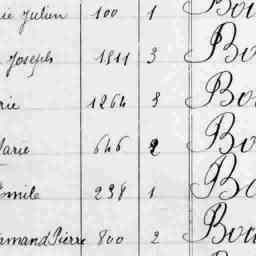 ie Julien 100 1 Bou
Joseph 1811 3 Bo
rie 1264 3 Bou
Marie 646 2 Bo
Emile 238 1 Bo
Armand Pierre 800 2 Bou